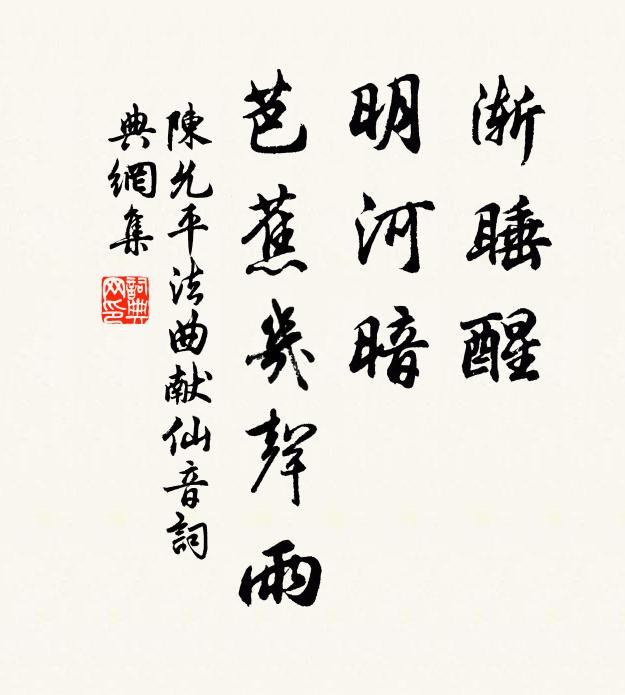 渐睡醒
明河暗
芭蕉幾聲雨
陳允平法曲献仙音詞
典網集
詞典
网印